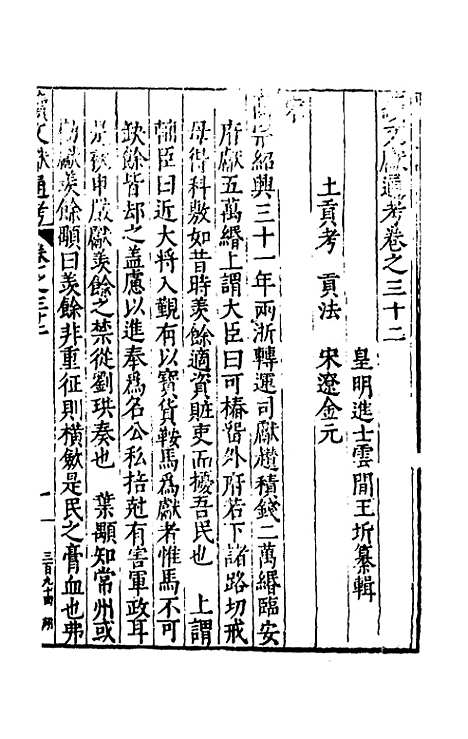 續文獻通考卷之三十二
皇明進士雲間王圻纂輯
土貢考　貢法　宋遼金元
宋
高宗紹興三十一年兩浙轉運司獻趲積錢二萬緡臨安
府獻五萬緡上謂大臣曰可樁留外府若下諸路切戒
毋得科敷如昔時羨餘適資贓吏而擾吾民也　上謂
輔臣曰近大將入覲有以寶貨鞍馬爲獻者惟馬不可
缺餘皆却之盖慮以進奉爲名公私掊尅有害軍政耳
是歲申嚴獻羨餘之禁從劉珙奏也　葉顒知常州或
勸獻羨餘顒曰羨餘非重征則橫斂是民之膏血也弗
續文獻通考
卷之三十二
一
三百九十四